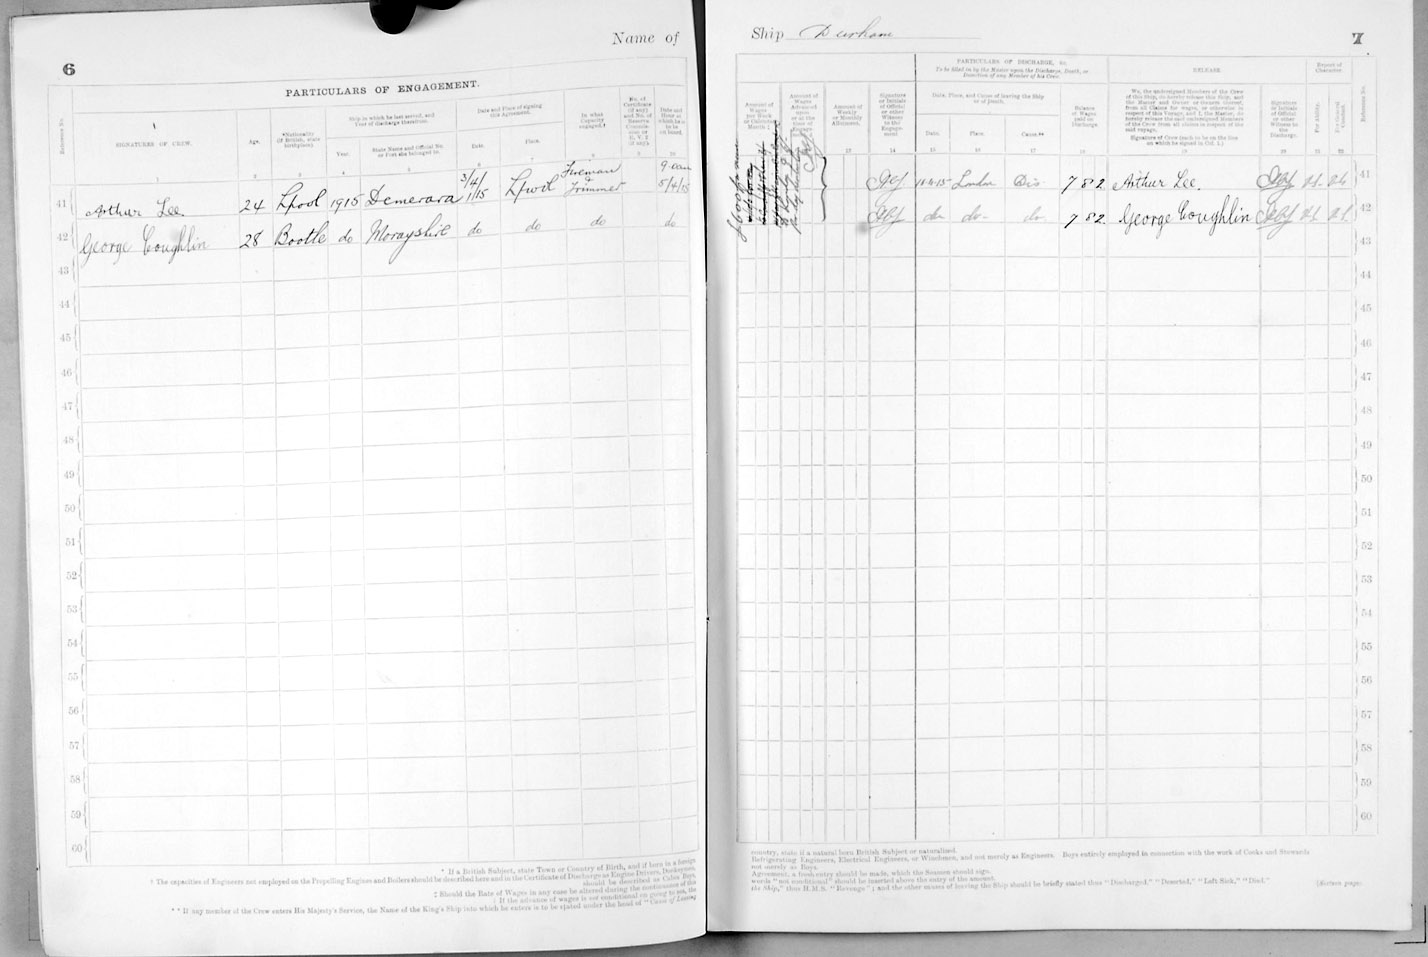 Name of
6
PARTICULARS OF ENGAGEMENT.
Reference No.
SIGNATURES OF CREW.
Age.
*Nationality
(If British, state
birthplace).
Ship in which he last served, and
Year of discharge therefrom.
Year.
State Name and Official No.
or Port she belonged to.
Date and Place of signing
this Agreement.
Date.
Place.
In what
Capacity
engaged.†
No. of
Certificate
(if any)
and No. of
Reserve
Commis-
sion or
R. V. 2
(if any).
Date and
Hour at
which he is
to be
on board.
1 2 3 4 5 6 7 8 9 10
41 Arthur Lee 24 Lpool 1915 Demerara 3/4/15 Lpool Fireman & Trimmer 9.0am 5/4/15
42 George Coughlin 28 Bootle do Morayshire do do do do
43
44
45
46
47
48
49
50
51
52
53
54
55
56
57
58
59
60
* If a British Subject, state Town or Country of Birth, and if born in a foreign
† The capacities of Engineers not employed on the Propelling Engines and Boilers should be described here and in the Certificate of Discharge as Engine Drivers, Donkeymen,
should be described as Cabin Boys,
‡ Should the Rate of Wages in any case be altered during the continuance of the
If the advance of wages is not conditional on going to sea, the
** If any member of the Crew enters His Majesty's Service, the Name of the King's Ship into which he enters is to be stated under the head of "Cause of Leaving
Ship Durham
7
PARTICULARS OF DISCHARGE, &c.
To be filled in by the Master upon the Discharge, Death, or
Desertion of any Member of his Crew.
RELEASE.
Report of
Character.
Amount of
Wages
per Week
or Calendar
Month
Amount of
Wages
Advanced
upon
Amount of
Weekly
or Monthly
Allotment.
Signature
or Initials
of Official
or other
Witness
to the
Engage-
ment
Date, Place, and Cause of leaving the Ship
or of Death.
Date.
Place.
Cause.**
Balance
of Wages
paid on
Discharge.
We, the undersigned Members of the Crew
of this Ship, do hereby release this Ship, and
the Master and Owner or Owners thereof,
from all Claims for wages, or otherwise in
respect of this Voyage, and I, the Master, do
hereby release the said undersigned Members
of the Crew from all claims in respect of the
said voyage.
Signature of Crew (each to be on the line
on which he signed in Col. 1.)
Signature
or Initials
of Official
or other
Witness to
the
Discharge.
For Ability.
For General
Conduct.
Reference No.
13 14 15 16 17 18 19 20 21 22
London Dis 7 8 2 Arthur Lee. 41
do do do 7 8 2 George Coughlin 42
43
44
45
46
47
48
49
50
51
52
53
54
55
56
57
58
59
60
country, state if a natural born British Subject or naturalized.
Refrigerating Engineers, Electrical Engineers, or Winchmen, and not merely as Engineers. Boys entirely employed in connection with the work of Cooks and Stewards
not merely as Boys.
Agreement, a fresh entry should be made, which the Seaman should sign.
words "not conditional" should be inserted above the entry of the amount.
the Ship," thus H.M.S. "Revenge"; and the other causes of leaving the Ship should be briefly stated thus "Discharged," "Deserted," "Left Sick," "Died."
(Sixteen page)